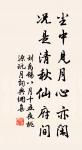 尘中见月心亦闲
况是清秋仙府间
刘禹锡八月十五夜桃
源玩月诗典佃集